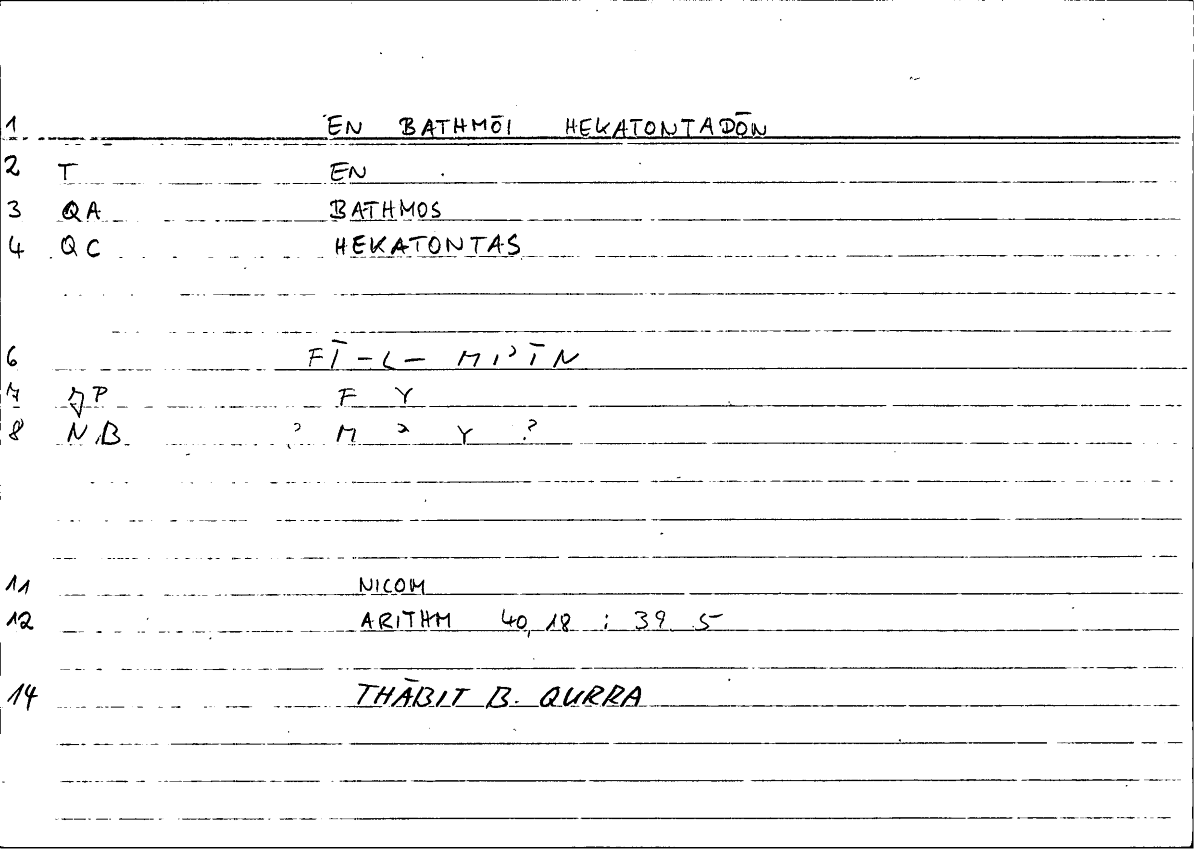 1 EN BATHMŌI HEKATONTADŌN
2 T EN
3 QA BATHMOS
4 QC HEKATONTAS
6 FĪ-L- MIʾĪN
7 P F Y
8 NB ? M ʾ Y ?
11 NICOM
12 ARITHM 40,18 : 39 5
14 THĀBIT B. QURRA